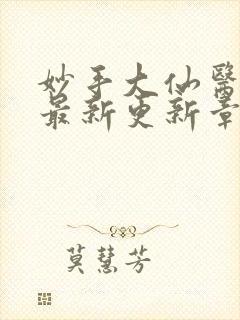 妙手大仙醫
最新更新章
莫慧芳